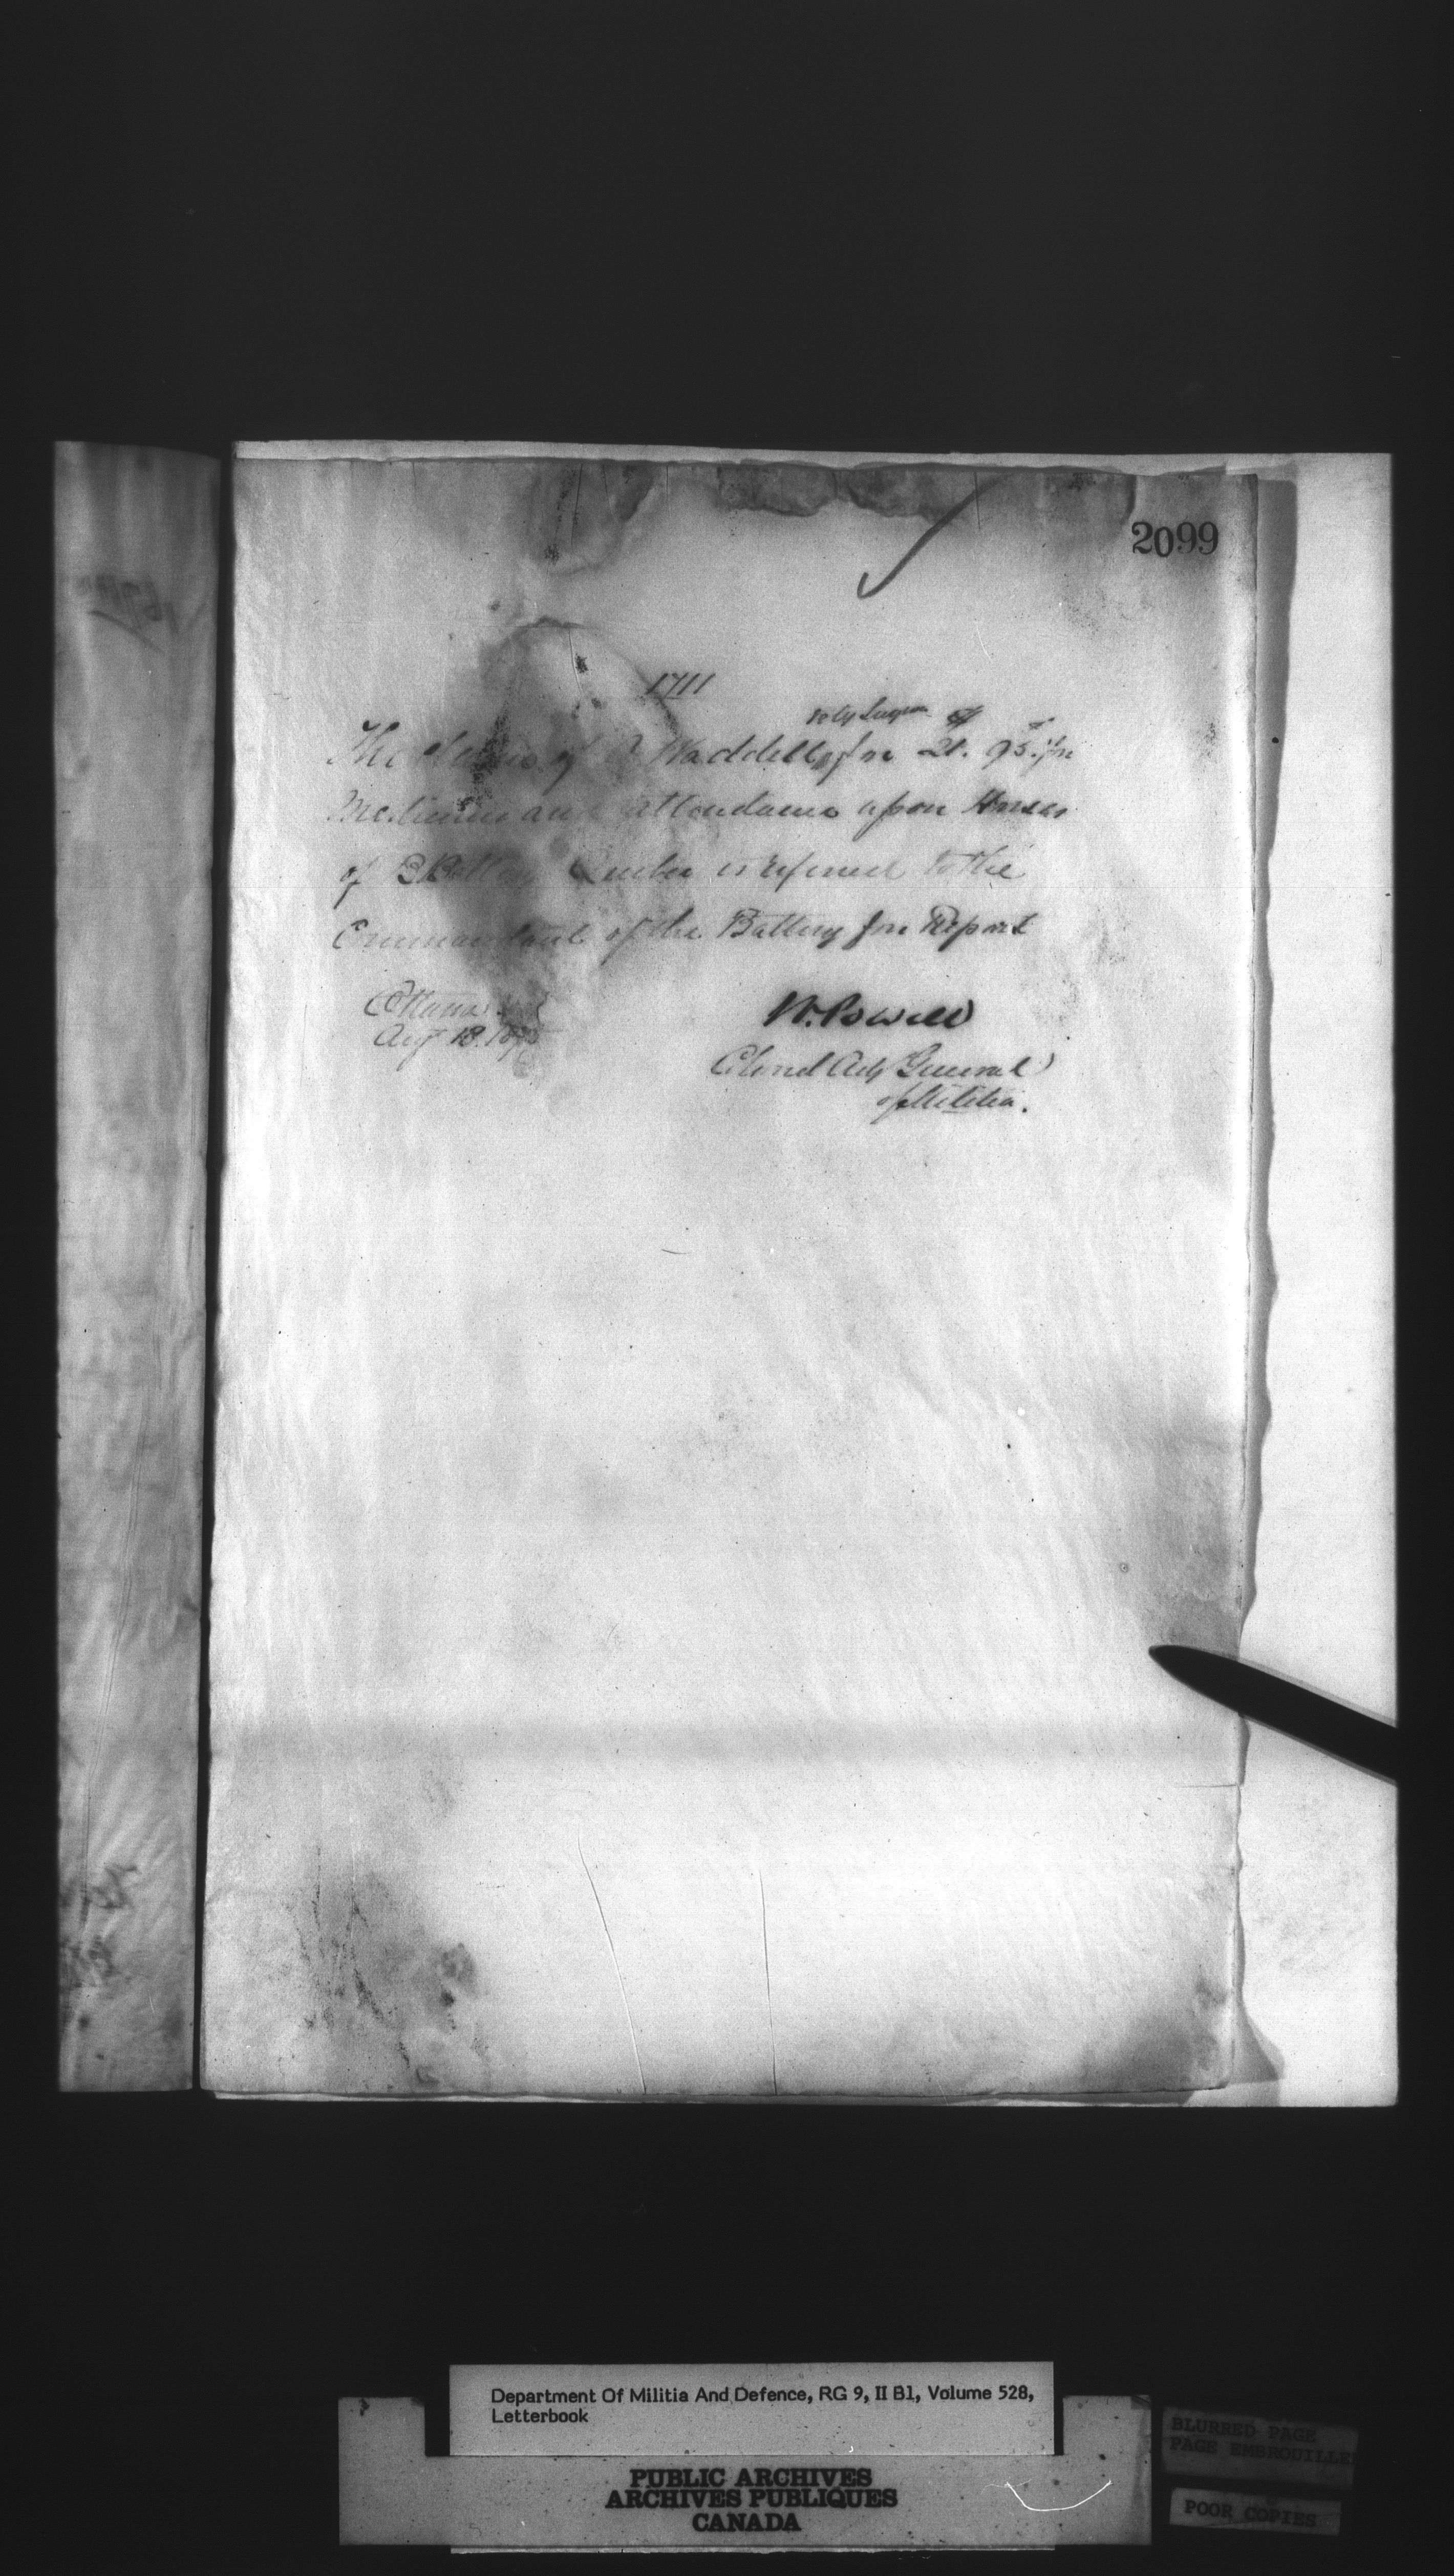 2099
1711
The of Waddell for 21. 95. for
Medicines and attendance upon Horses
of B Battery Quebec is referred to the
Commandant of the Battery for Report
Ottawa
Augt 18. 1875
W. Powell
Colonel Adjt General
of Militia.
Department Of Militia And Defence, RG 9, II B1, Volume 528,
Letterbook
PUBLIC ARCHIVES
ARCHIVES PUBLIQUES
CANADA
BLURRED PAGE
PAGE EMBROUILLEE
POOR COPIES